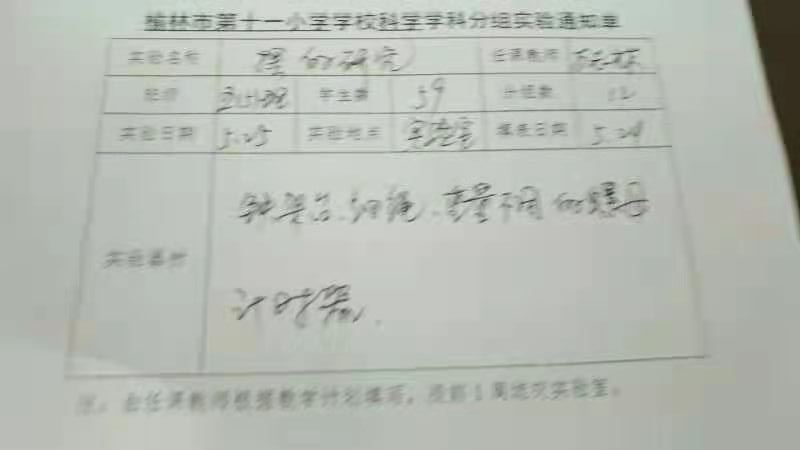 榆林市第十一小学学校科学学科分组实验通知单
实验名称 摆的研究 任课教师
班级 学生数 59 分组数 12
实验日期 5.25 实验地点 实验室 填表日期 5.24
实验器材 铁架台、细绳、重量不同的螺母
计时器.
注:由任课教师根据教学计划填写,提前1周送交实验室。